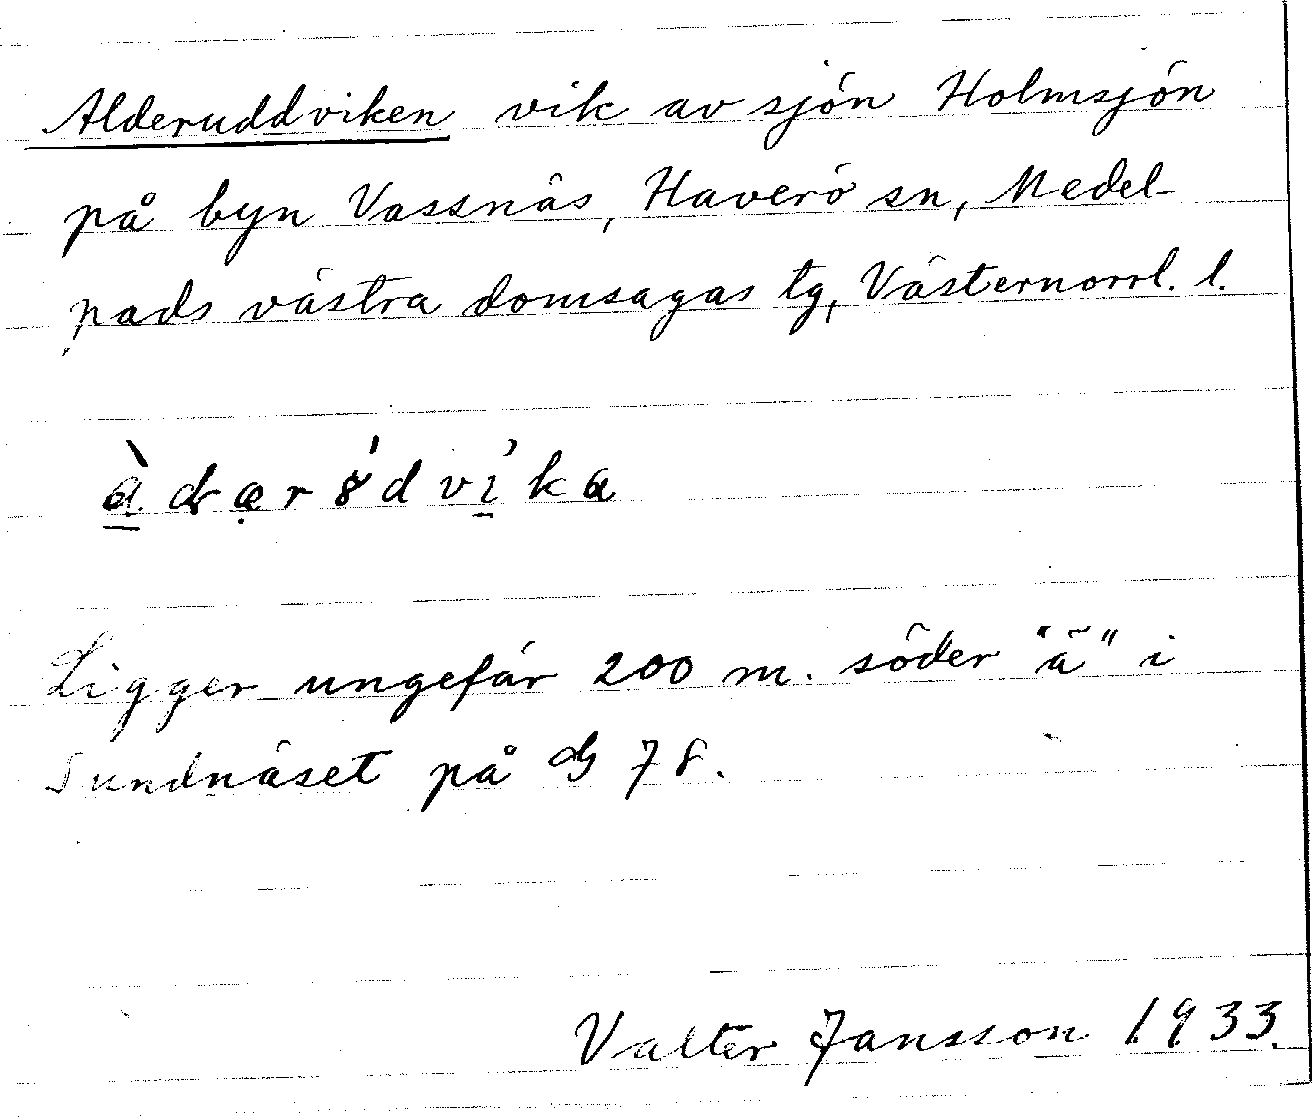 Alderuddviken vik av sjön Holmsjön
på byn Vassnäs, Haverö sn, Medel-
pads västra domsagas tg, Västernorrl. l.
Ligger ungefär 200 m. söder "ä" i
Sundnäset på 78.
Valter Jansson 1933.